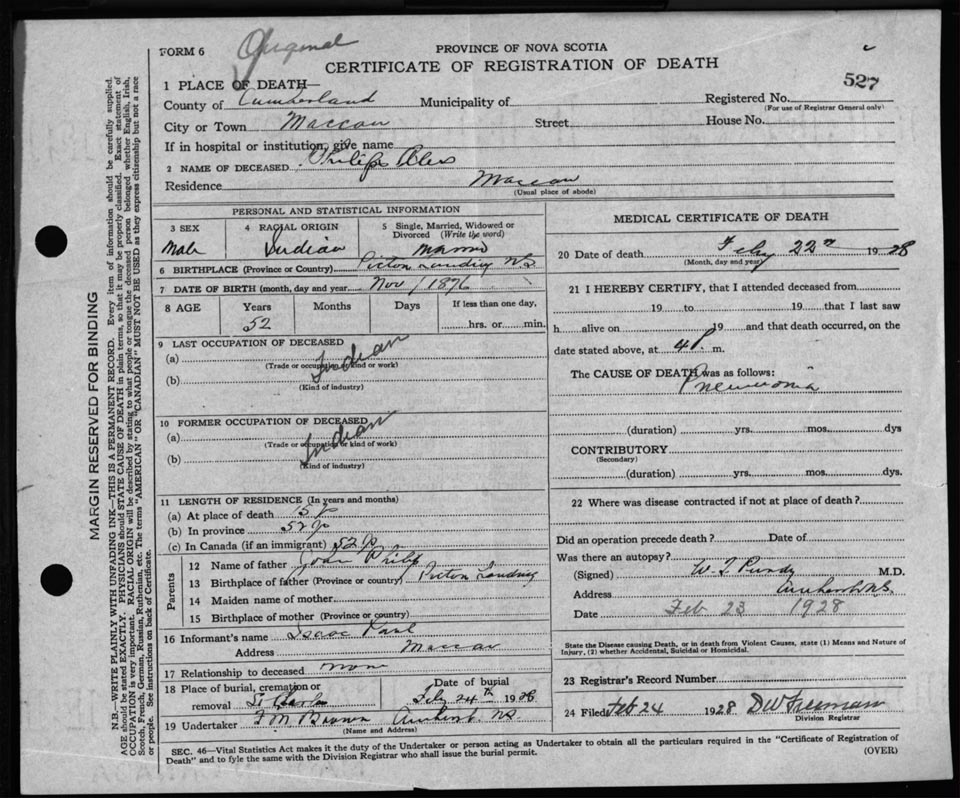 FORM 6 Original PROVINCE OF NOVA SCOTIA
CERTIFICATE OF REGISTRATION OF DEATH
527
1 PLACE OF DEATH—
County of Cumberland Municipality of Registered No.
(For use of Registrar General only)
City or Town Maccan Street House No.
If in hospital or institution, give name
2 NAME OF DECEASED Philip
Residence Maccan
(Usual place of abode)
PERSONAL AND STATISTICAL INFORMATION
3 SEX 4 RACIAL ORIGIN 5 Single, Married, Widowed or Divorced (Write the word)
Male Indian Married
6 BIRTHPLACE (Province or Country) Picton Landing NS
7 DATE OF BIRTH (month, day and year) Nov / 1876
8 AGE Years Months Days If less than one day,
52 hrs. or min.
9 LAST OCCUPATION OF DECEASED
(a) Indian
(Trade or occupation or kind or work)
(b)
(Kind of industry)
10 FORMER OCCUPATION OF DECEASED
(a) Indian
(Trade or occupation or kind of work)
(b)
(Kind of industry)
11 LENGTH OF RESIDENCE (In years and months)
(a) At place of death 15
(b) In province 52
(c) In Canada (if an immigrant) 52
Parents
12 Name of father John Philip
13 Birthplace of father (Province or country) Picton Landing
14 Maiden name of mother
15 Birthplace of mother (Province or country)
16 Informant's name Isaac Paul
Address Maccan
17 Relationship to deceased none
18 Place of burial, cremation or removal Date of burial
Feb 24th 1928
19 Undertaker F M Brown Amherst NS
(Name and Address)
MEDICAL CERTIFICATE OF DEATH
20 Date of death Feby 22nd 1928
(Month, day and year)
21 I HEREBY CERTIFY, that I attended deceased from
19 to 19 that I last saw
h alive on 19 and that death occurred, on the
date stated above, at 4 P. m.
The CAUSE OF DEATH was as follows:
Pneumonia
(duration) yrs. mos. dys
CONTRIBUTORY
(Secondary)
(duration) yrs. mos. dys.
22 Where was disease contracted if not at place of death?
Did an operation precede death? Date of
Was there an autopsy?
(Signed) W T Purdy M.D.
Address Amherst N.S.
Date Feb 23 1928
State the Disease causing Death, or in death from Violent Causes, state (1) Means and Nature of
Injury, (2) whether Accidental, Suicidal or Homicidal.
23 Registrar's Record Number
24 Filed Feb 24 1928 DW Freeman
Division Registrar
SEC. 46—Vital Statistics Act makes it the duty of the Undertaker or person acting as Undertaker to obtain all the particulars required in the "Certificate of Registration of
Death" and to fyle the same with the Division Registrar who shall issue the burial permit. (OVER)
MARGIN RESERVED FOR BINDING
N.B.—WRITE PLAINLY WITH UNFADING INK—THIS IS A PERMANENT RECORD. Every item of information should be carefully supplied.
AGE should be stated EXACTLY. PHYSICIANS should STATE CAUSE OF DEATH in plain terms, so that it may be properly classified. Exact statement of
OCCUPATION is very important. RACIAL ORIGIN will be described by stating to what people or tongue the deceased person belonged whether English, Irish,
Scotch, French, German, Russian, Ruthenian, etc. The terms "AMERICAN" OR "CANADIAN" MUST NOT BE USED as they express citizenship but not a race
or people. See instructions on back of Certificate.